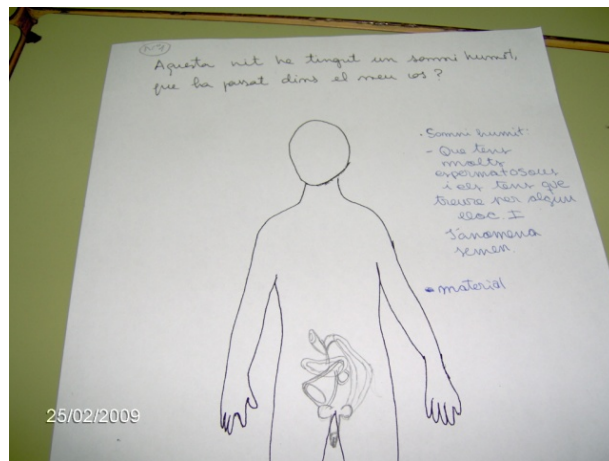 Aquesta nit he tingut un somni humit,
que ha passat dins el meu cos?
• Somni humit:
- Que tens
molts
espermatosous
i els tens que
treure per algun
lloc. I
s'anomena
semen.
• material
25/02/2009